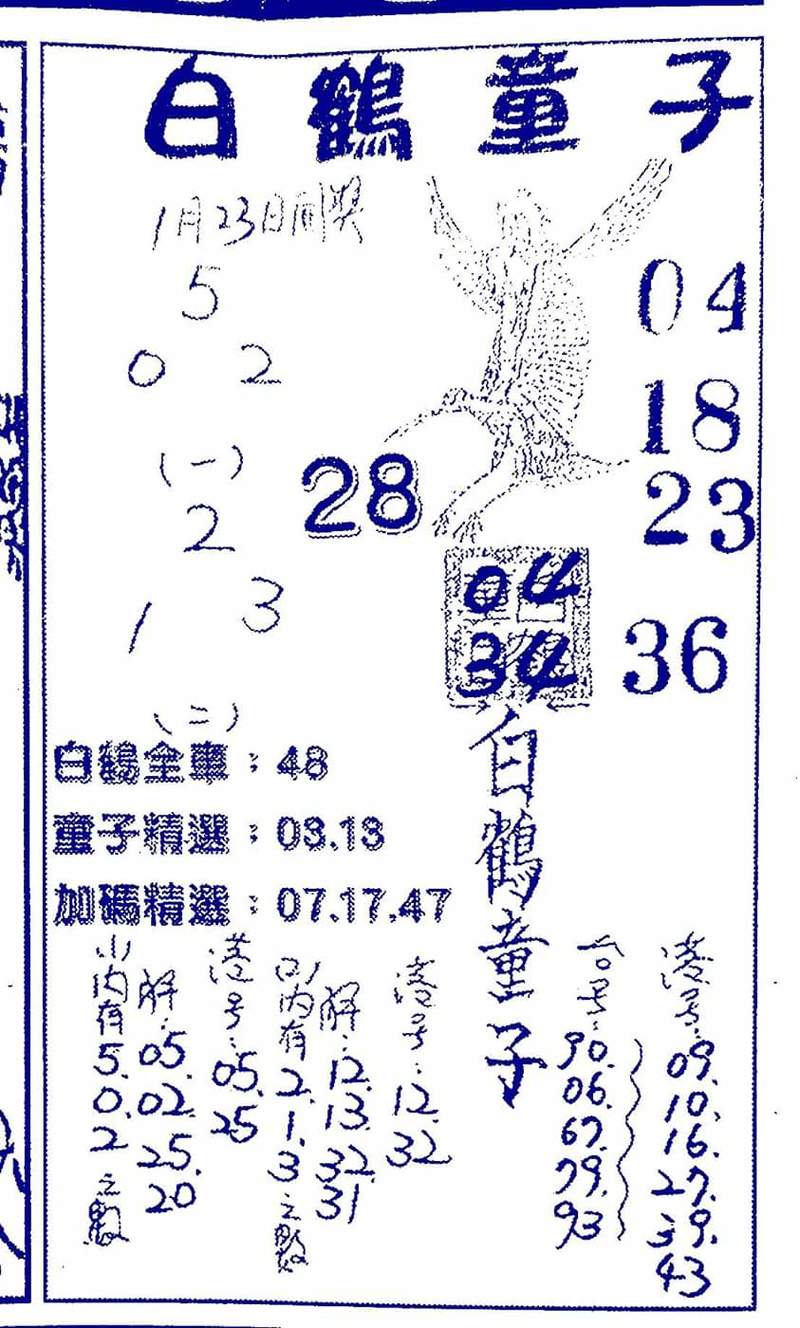 白鶴童子
1月23日開獎
5
0 2
(一)
2
1 3
(二)
28
04
18
23
36
04
34
白鶴全車：48
童子精選：03.13
加碼精選：07.17.47
白鶴童子
(1)內有5.0.2之數
解：05.02.25.20
港号：05.25
(2)內有2.1.3之數
解：12.13.32.31
港号：12.32
台号：90.06.67.79.93
港号：09.10.16.27.39.43